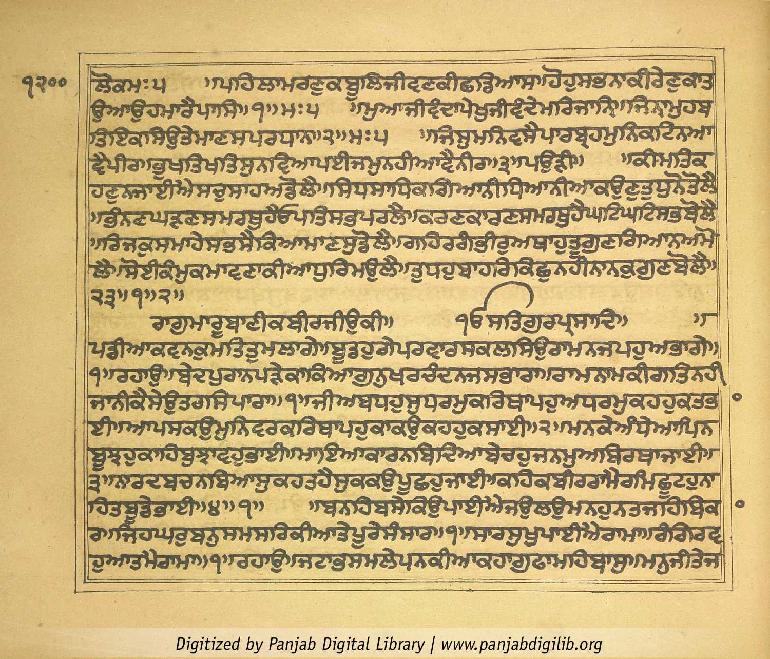 ੧੨੦੦
ਲੋਕਮਃ੫ ॥ਪਹਿਲਾਮਰਣੁਕਬੂਲਿਜੀਵਣਕੀਛਡਿਆਸ॥ਹੋਹੁਸਭਨਾਕੀਰੇਣੁਕਾਤ
ਉਆਉਹਮਾਰੈਪਾਸਿ॥੧॥ਮਃ੫ ॥ਮੁਆਜੀਵੰਦਾਪੇਖੁਜੀਵੰਦੇਮਰਿਜਾਨਿ॥ਜਿਨਾਮੁਹਬ
ਤਿਇਕਸਿਉਤੇਮਾਣਸਪਰਧਾਨ॥੨॥ਮਃ੫ ॥ਜਿਸੁਮਨਿਵਸੈਪਾਰਬ੍ਰਹਮੁਨਿਕਟਿਨਆ
ਵੈਪੀਰ॥ਭੁਖਤਿਖਤਿਸੁਨਵਿਆਪਈਜਮੁਨਹੀਆਵੈਨੀਰ॥੩॥ਪਉੜੀ॥ ॥ਕੀਮਤਿਕ
ਹਣੁਨਜਾਈਐਸਚੁਸਾਹਅਡੋਲੈ॥ਸਿਧਸਾਧਿਕਗਿਆਨੀਧਿਆਨੀਆਕਉਣੁਤੁਧੁਨੋਤੋਲੈ
॥ਭੰਨਣਘੜਣਸਮਰਥੁਹੈਓਪਤਿਸਭਪਰਲੈ॥ਕਰਣਕਾਰਣਸਮਰਥੁਹੈਘਟਿਘਟਿਸਭਬੋਲੈ
॥ਰਿਜਕੁਸਮਾਹੇਸਭਸੈਕਿਆਮਾਣਸੁਡੋਲੈ॥ਗਹਿਰਗਭੀਰੁਅਥਾਹੁਤੂਗੁਣਗਿਆਨਅਮੋ
ਲੈ॥ਸੋਈਕੰਮੁਕਮਾਵਣਾਕੀਆਧੁਰਿਮਉਲੈ॥ਤੁਧਹੁਬਾਹਰਿਕਿਛੁਨਹੀਨਾਨਕੁਗੁਣਬੋਲੈ॥
੨੩॥੧॥੨॥
ਰਾਗੁਮਾਰੂਬਾਣੀਕਬੀਰਜੀਉਕੀ॥ ੴਸਤਿਗੁਰਪ੍ਰਸਾਦਿ॥ ॥
ਪਡੀਆਕਵਨਕੁਮਤਿਤੁਮਲਾਗੇ॥ਬੂਡਹੁਗੇਪਰਵਾਰਸਕਲਸਿਉਰਾਮਨਜਪਹੁਅਭਾਗੇ॥
੧॥ਰਹਾਉ॥ਬੇਦਪੁਰਾਨਪੜੇਕਾਕਿਆਗੁਨੁਖਰਚੰਦਨਜਸਭਾਰਾ॥ਰਾਮਨਾਮਕੀਗਤਿਨਹੀ
ਜਾਨੀਕੈਸੇਉਤਰਸਿਪਾਰਾ॥੧॥ਜੀਅਬਧਹੁਸੁਧਰਮੁਕਰਿਥਾਪਹੁਅਧਰਮੁਕਹਹੁਕਤਭ
ਈ॥ਆਪਸਕਉਮੁਨਿਵਰਕਰਿਥਾਪਹੁਕਾਕਉਕਹਹੁਕਸਾਈ॥੨॥ਮਨਕੇਅੰਧੇਆਪਿਨ
ਬੂਝਹੁਕਾਹਿਬੁਝਾਵਹੁਭਾਈ॥ਮਾਇਆਕਾਰਨਬਿਦਿਆਬੇਚਹੁਜਨਮੁਅਬਿਰਥਾਜਾਈ॥
੩॥ਨਾਰਦਬਚਨਬਿਆਸੁਕਹਤਹੈਸੁਕਕਉਪੂਛਹੁਜਾਈ॥ਕਹਿਕਬੀਰਰਾਮੈਰਮਿਛੂਟਹੁਨਾ
ਹਿਤਬੂਡੇਭਾਈ॥੪॥੧॥ ॥ਬਨਹਿਬਸੇਕਿਉਪਾਈਐਜਉਲਉਮਨਹੁਨਤਜਹਿਬਿਕ
ਾਰ॥ਜਿਹਘਰੁਬਨੁਸਮਸਰਿਕੀਆਤੇਪੂਰੇਸੰਸਾਰ॥੧॥ਸਾਰਸੁਖੁਪਾਈਐਰਾਮਾ॥ਰੰਗਿਰਵ
ਹੁਆਤਮੈਰਾਮ॥੧॥ਰਹਾਉ॥ਜਟਾਭਸਮਲੇਪਨਕੀਆਕਹਾਗੁਫਾਮਹਿਬਾਸੁ॥ਮਨੁਜੀਤੇਜ
Digitized by Panjab Digital Library | www.panjabdigilib.org